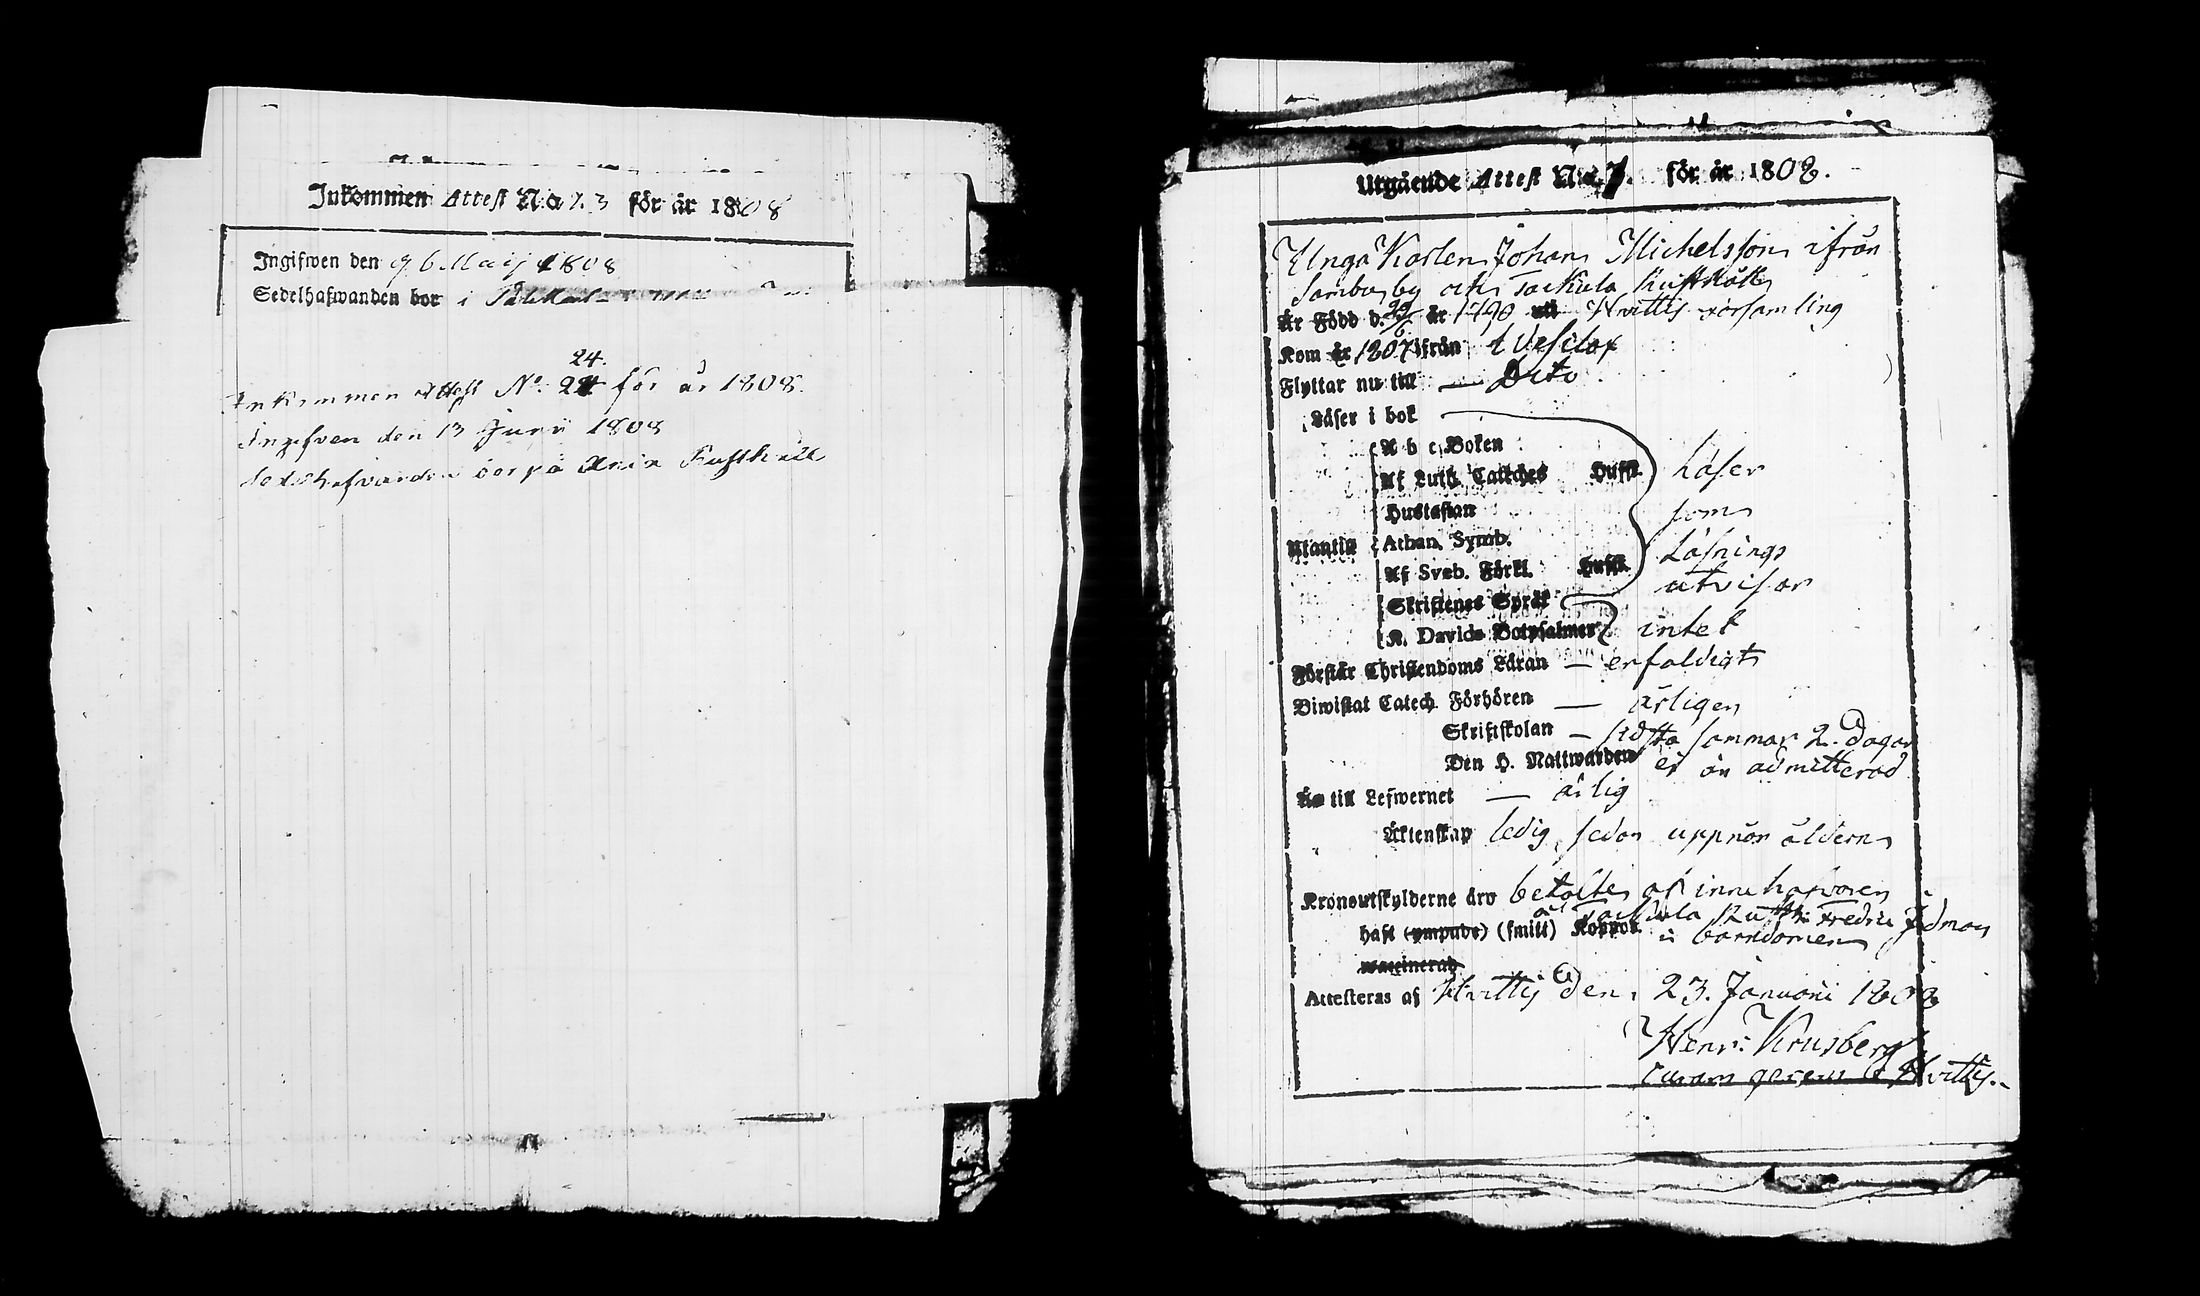 Inkommen Attest No 23 för år 1808
Ingifwen den 26 Maij 1808
Sedelhafwanden bor i
24.
Inkommen Attest No. 24 för år 1808.
Ingifven den 13 Junii 1808
Sedelhafvanden bor på Ania Rusthåll
Utgående Attest No. 7. för år 1808.
Unga Karlen Johan Michelsson ifrån
Samba by och Tackula Rusthåll
Är Född d. 29/6 år 1790 uti Hvittis Församling
Kom år 1807 ifrån Vesilax
Flyttar nu till — Dito
Läser i bok
A b c Boken
Af Luth. Cateches Hufft. Läser
Hustaflan som
Utantill Athan. Symb. Läsnings
Af Sveb. Förkl. Hufft. utvisar
Skriftenes Språk
K. Davids Botpsalmer intet
Förstår Christendoms Läran — enfaldigt
Biwistat Catech. Förhören — årligen
Skriftskolan — sidsta sommar 2. dagar
Den H. Nattwarden ej än admitterad
Är till Lefwernet — ärlig
Äktenskap ledig, sedan uppnår åldern
Kronoutskylderne äro betalte af innehafvaren
af Tackula Rusth. Fredric Idman
haft (ympade) (smitt) Koppor i barndomen
waccinerad
Attesteras af Hvittis den 23. Januari 1808
Henr: Krusberg
curam gerens i Hvittis.